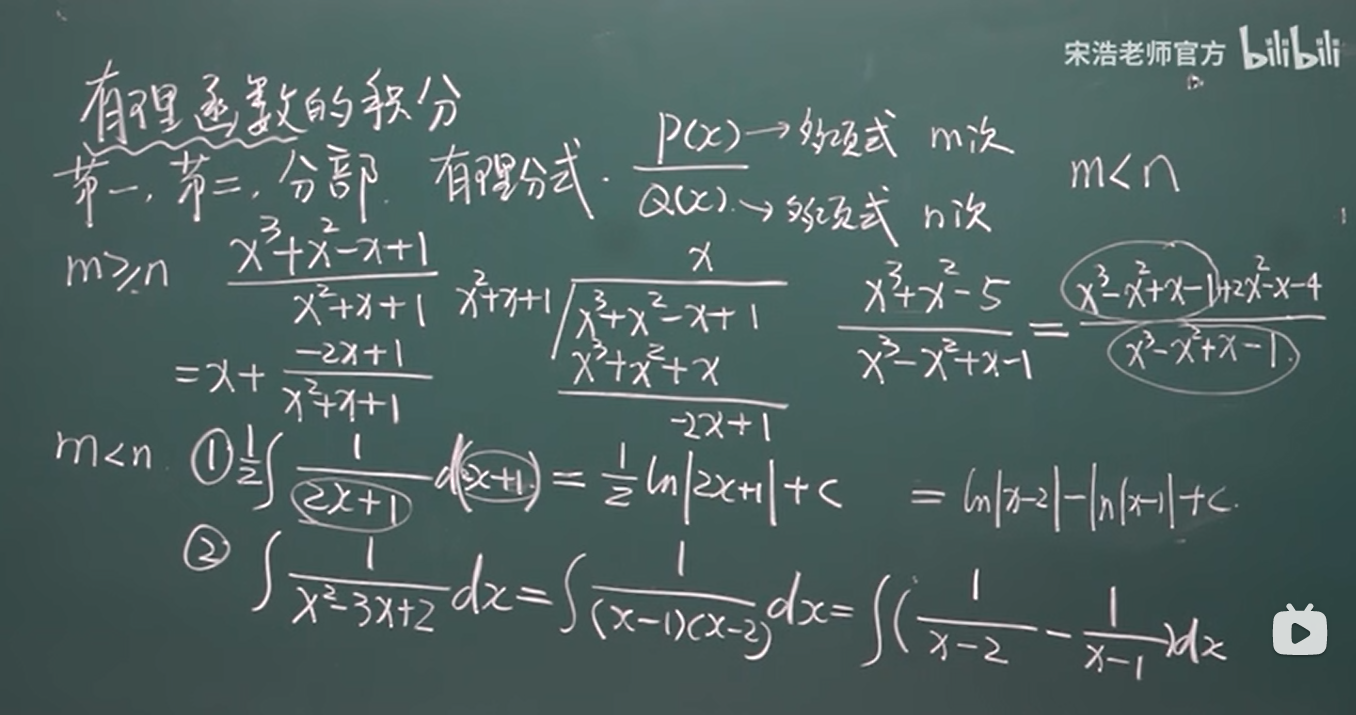 宋浩老师官方 bilibili
有理函数的积分
第一,第二,分部. 有理分式. P(x)/Q(x) P(x)→多项式 m次 Q(x)→多项式 n次 m<n
m≥n (x³+x²-x+1)/(x²+x+1)
= x + (-2x+1)/(x²+x+1)
x
x²+x+1 √ x³+x²-x+1
x³+x²+x
-2x+1
(x³+x²-5)/(x³-x²+x-1) = (x³-x²+x-1+2x²-x-4)/(x³-x²+x-1)
m<n. ① ½∫ 1/(2x+1) d(2x+1) = ½ ln|2x+1|+c
② ∫ 1/(x²-3x+2) dx = ∫ 1/((x-1)(x-2)) dx = ∫(1/(x-2) - 1/(x-1))dx
= ln|x-2|-ln|x-1|+c.